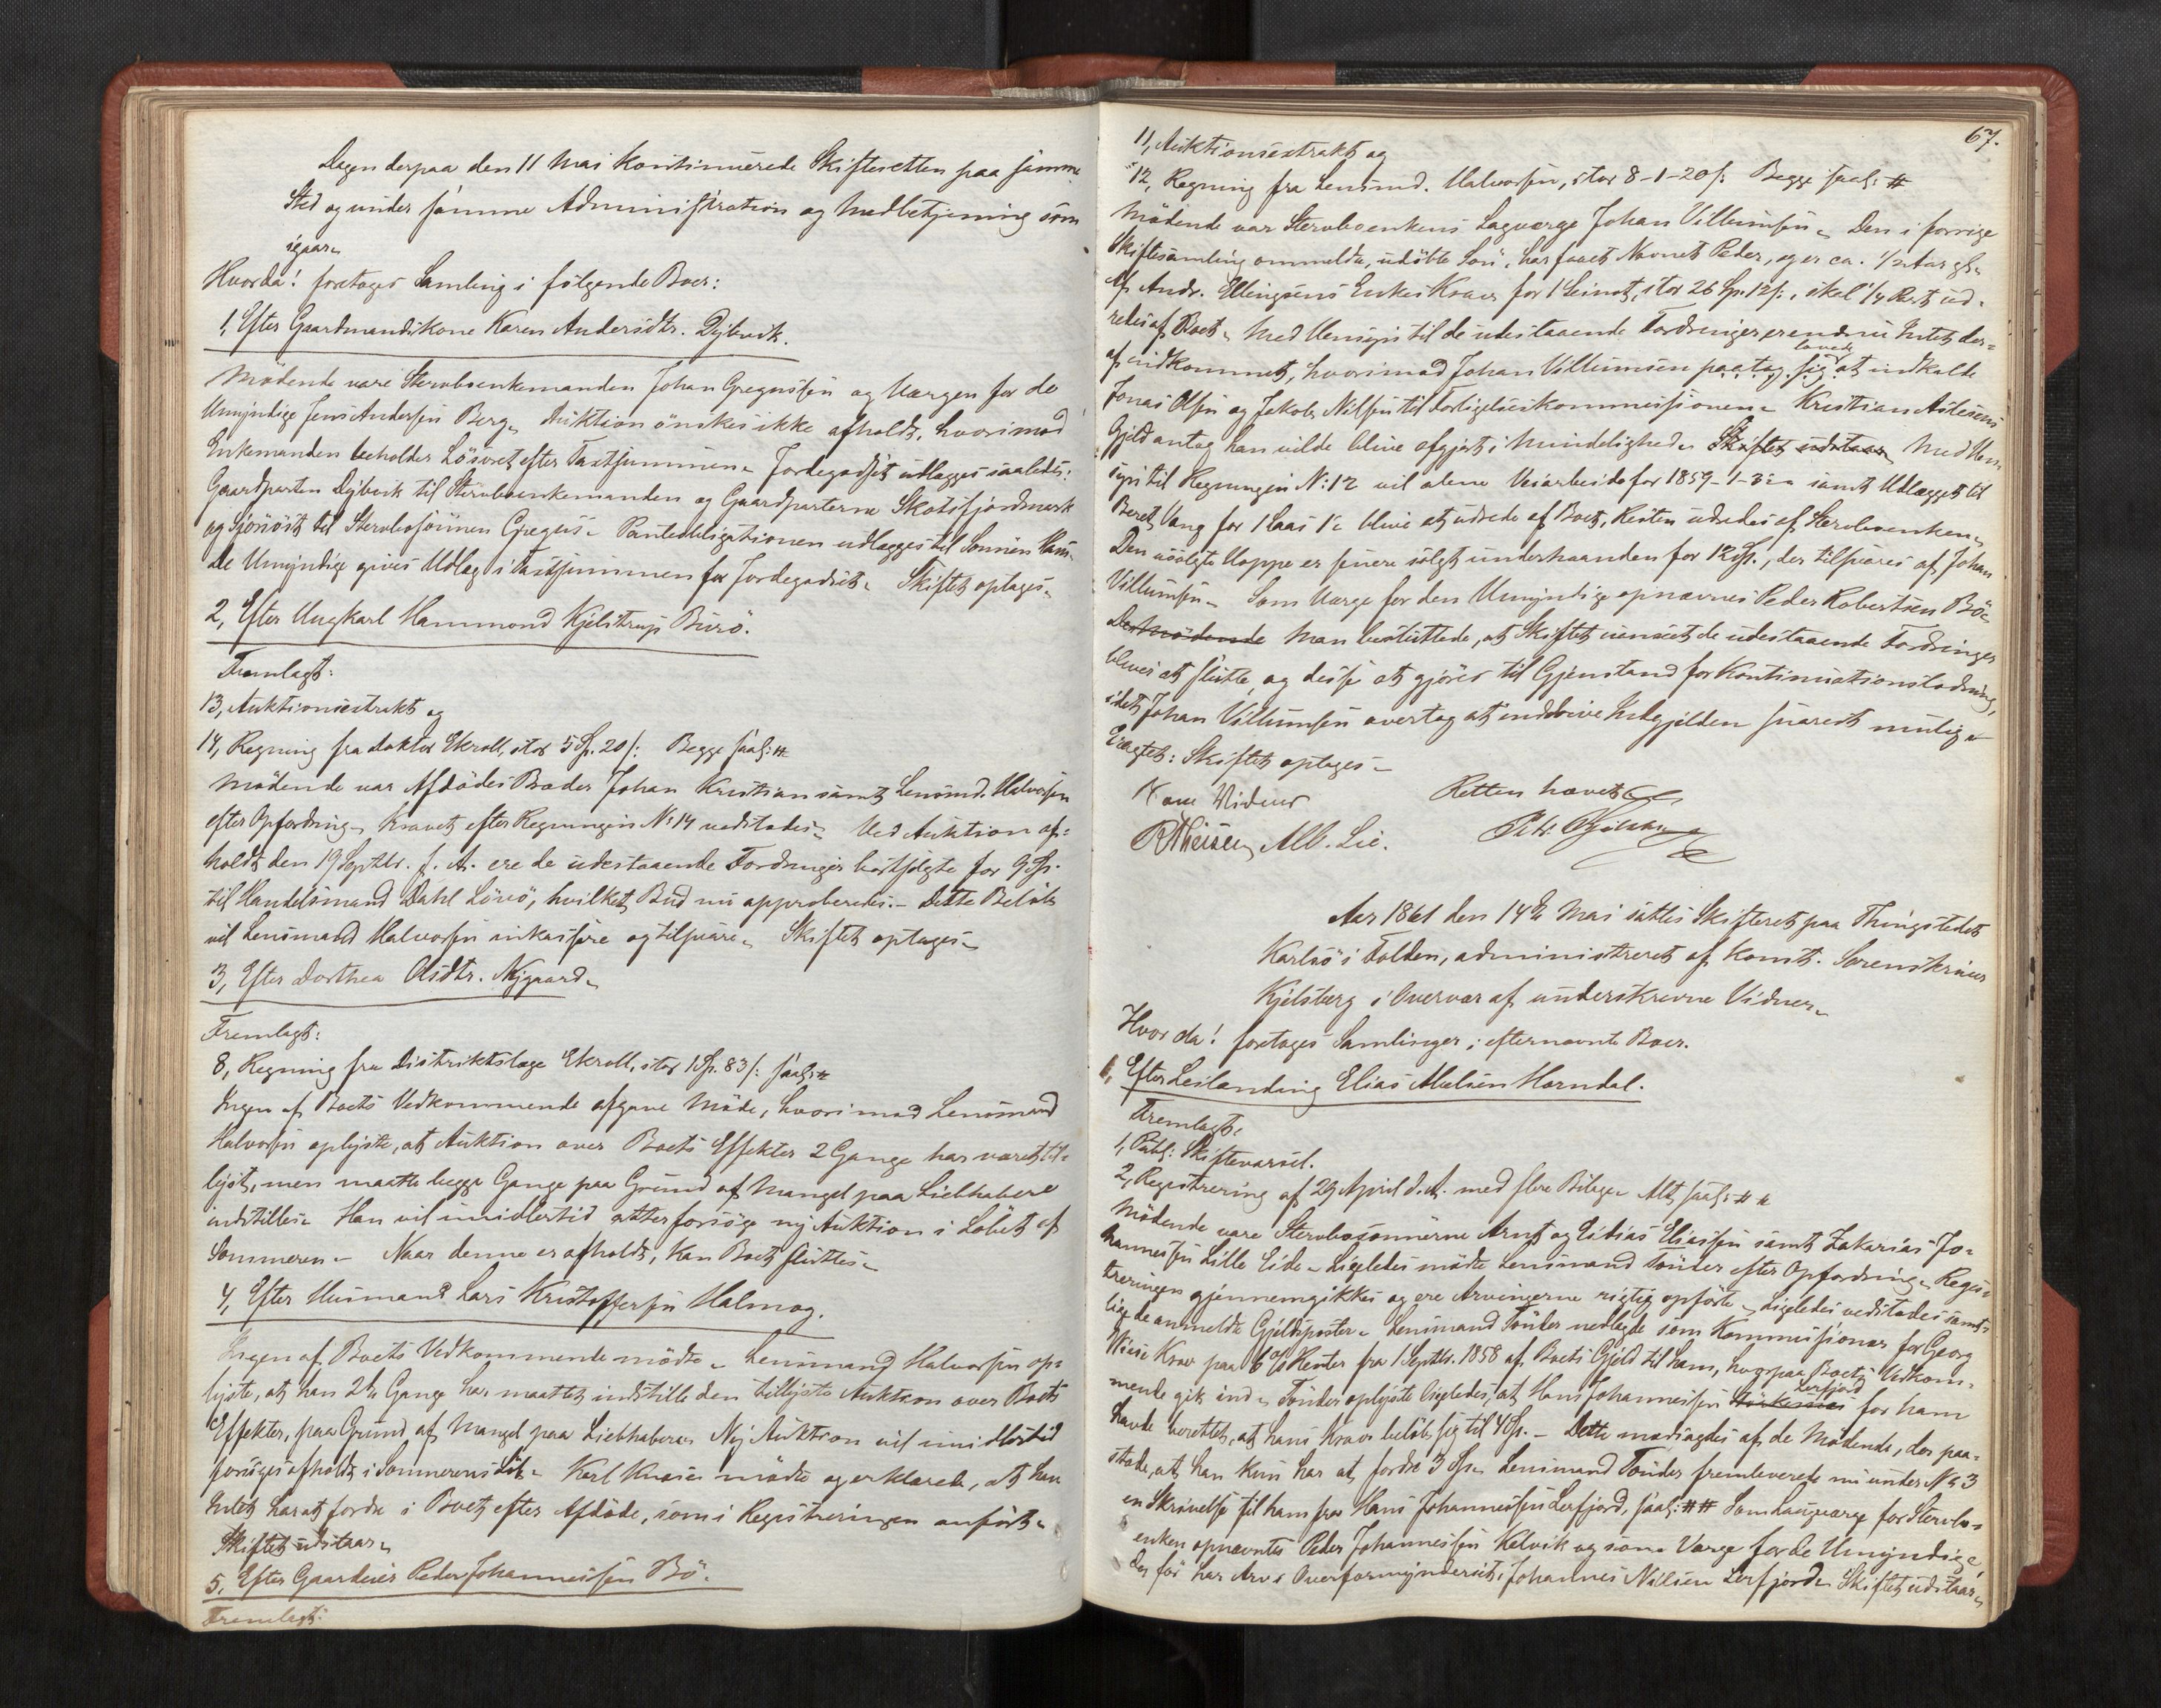 Dagen derpaa den 11 Mai kontinuerede Skifteretten paa samme
Sted og under samme Administration og Medbetjening som
igaar.
Hvorda! foretoges Samling i følgende Boer:
1, Efter Gaardmandskone Karen Andersdtr. Dybvik.
Mødende vare Stervboenkemanden Johan Gregussen og Værgen for de
Umyndige Jens Andersen Berg. Auktion ønskes ikke afholdt, hvorimod
Enkemanden beholder Løsøret efter Taxtsummen. Jordegodset udlægges saaledes:
Gaardparten Dybvik til Stervboenkemanden og Gaardparterne Skotsfjordmark
og til Stervbosønnen Gregus. Panteobligationen udlægges til Sønnen
de Umyndige gives Udlæg i Taxtsummen for Jordegodset. Skiftet optages.
2, Efter Ungkarl Hammond Kjelstrup Burø.
Fremlagt:
13, Auktionsextrakt og
14, Regning fra doktor Ekroll, stor 5 Sp. 20 s: Begge saal: #
Mødende var Afdødes Broder Johan Kristian samt Lensmd. Halvorsen
efter Opfordring. Kravet efter Regningen No 14 vedstodes. Ved Auktion af=
holdt den 19 Septbr. f. A. ere de udestaaende Fordringer bortsolgte for 9 Sp.
til Handelsmand Dahl Løvø, hvilket Bud nu approberedes. - Dette Beløb
vil Lensmand Halvorsen inkassere og tilsvare. Skiftet optages.
3, Efter Dorthea Olsdtr. Nygaard.
Fremlagt:
8, Regning fra Distriktslæge Ekroll, stor 1 Sp. 83 s: saal: #
Ingen af Boets Vedkommende afgave Møde, hvorimod Lensmand
Halvorsen oplyste, at Auktion over Boets Effekter 2 Gange har været til=
lyst, men maatte begge Gange paa Grund af Mangel paa Liebhabere
indstilles. Han vil imidlertid atter forsøge ny Auktion i Løbet af
Sommeren. - Naar denne er afholdt, kan Boet sluttes.
4, Efter Husmand Lars Kristoffersen Halmøy.
Ingen af Boets Vedkommende mødte. Lensmand Halvorsen op=
lyste, at han 2de Gange har maattet indstille den tillyste Auktion over Boets
Effekter, paa Grund af Mangel paa Liebhabere. Ny Auktion vil imidlertid
forsøges afholdt i Sommerens Løb. Karl mødte og erklærede, at han
Intet har at fordre i Boet efter Afdøde, som i Registreringen anført.
Skiftet udstaar.
5, Efter Gaardeier Peder Johannessen Bø.
Fremlagt:
67.
11, Auktionsextrakt og
12, Regning fra Lensmd. Halvorsen, stor 8-1-20 s: Begge saal: #
Mødende var Stervboenkens Lagværge Johan Villumsen. Den i forrige
Skiftesamling ommeldte, udøbte Søn, har faaet Navnet Peder, og er ca. 1/2 Aar gl.
Af Andr. Ellingsens Enkes Krav for 1 , stor 26 Sp. 12 s:, skal 1/4 Part ud=
redes af Boet. Med Hensyn til de udestaaende Fordringer er endnu Intet der=
lovede
af indkommet, hvorimod Johan Villumsen paatog sig at indkalde
Jonas Olsen og Jakob Nilsen til Forligelseskommissionen. Kristian
Gjeld antog han vilde blive afgjort i Mindelighed. Skiftet udstaar Med Hen=
syn til Regningen No: 12 vil alene Veiarbeide for 1859 - 1-3 - samt Udlægget til
Beret Vang for 1 blive at udrede af Boet, Resten udredes af Stervboenken.
Den usolgte Hoppe er senere solgt underhaanden for 12 Sp., der tilsvares af Johan
Villumsen. Som Værge for den Umyndige opnævnes Peder Robertsen Bø.
De Mødende Man besluttede, at Skiftet uanseet de udestaaende Fordringer
bliver at slutte, og disse at gjøres til Gjenstand for Kontinuationslodning,
idet Johan Villumsen overtog at inddrive Indegjælden snarest mulig.
Eragtet: Skiftet optages.
Som Vidner Retten hævet
RTheisen Alb. Lie.
Aar 1861 den 14de Mai sattes Skifteret paa Thingstedet
Karlsø i Folden, administreret af Konst. Sorenskriver
Kjelsberg i Overvær af underskrevne Vidner.
Hvor da! foretoges Samlinger i efternævnte Boer.
1, Efter Leilænding Elias Abelsen Horndal.
Fremlagt:
1, Publ: Skiftevarsel.
2, Registrering af 29 April d. A. med flere Bilage. Alt saal: # #
Mødende vare Stervbosønnerne Arnt og Eliassen samt Zakarias Jo=
hannessen Lille Eide. Ligeledes mødte Lensmand Tønder efter Opfordring. Regis=
treringen gjennemgikkes og ere Arvingerne rigtig opførte. Ligeledes vedstodes samt=
lige de anmeldte Gjeldsposter. Lensmand Tønder nedlagde som Kommissionær for Georg
Wiese Krav paa 6% Renter fra 1 Septbr. 1858 af Boets Gjeld til ham, hvorpaa Boets Vedkom=
Lerfjord
mende gik ind. Tønder oplyste ligeledes, at Hans Johannessen for ham
havde berettet, at hans Krav beløb sig til 4 Sp. - Dette modsagdes af de Mødende, der paa=
stode, at han kun har at fordre 3 Sp. Lensmand Tønder fremleverede nu under No 3
en Skrivelse til ham fra Hans Johannessen Lerfjord, saal: ## Som Laugværge for Stervbo=
enken opnævntes Peder Johannessen Kelvik og som Værge for de Umyndige,
der før har Arv i Overformynderiet, Johannes Nilsen Lerfjord. Skiftet udstaar.